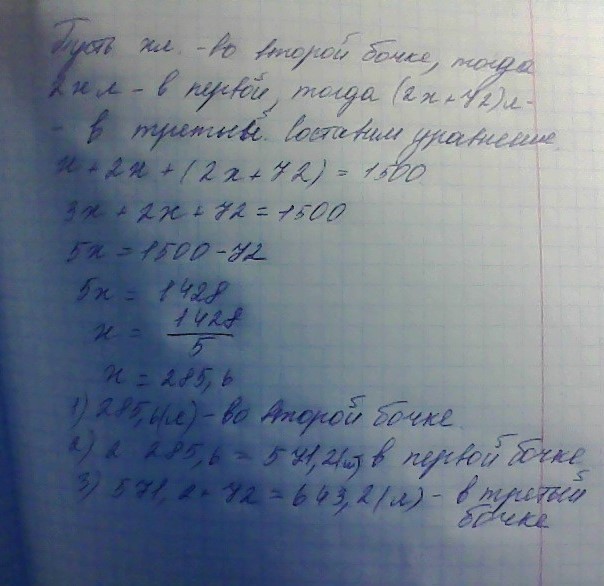 Пусть х л. - во второй бочке, тогда
2х л - в первой, тогда (2х+72) л -
- в третьей. Составим уравнение
х + 2х + (2х+72) = 1500
3х + 2х + 72 = 1500
5х = 1500 - 72
5х = 1428
х = 1428/5
х = 285,6
1) 285,6(л) - во второй бочке.
2) 2 285,6 = 571,2(л) в первой бочке
3) 571,2 + 72 = 643,2 (л) - в третьй
бочке